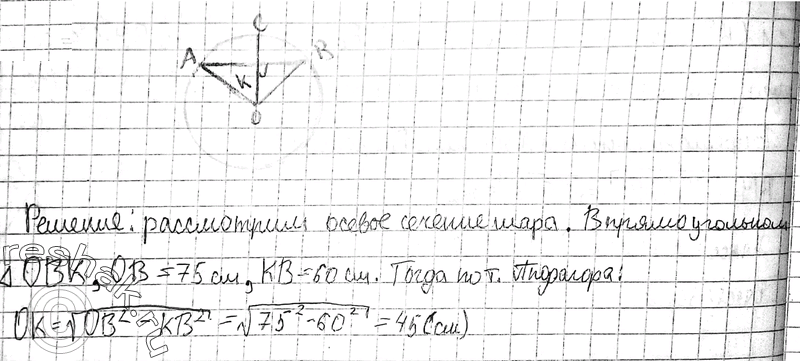 C
A
B
K
O
Решение: рассмотрим осевое сечение шара. В прямоугольном
Δ OBK, OB = 75 см, KB = 60 см. Тогда по т. Пифагора:
OK = √OB² - KB² = √75² - 60² = 45 (см)
reshak.ru